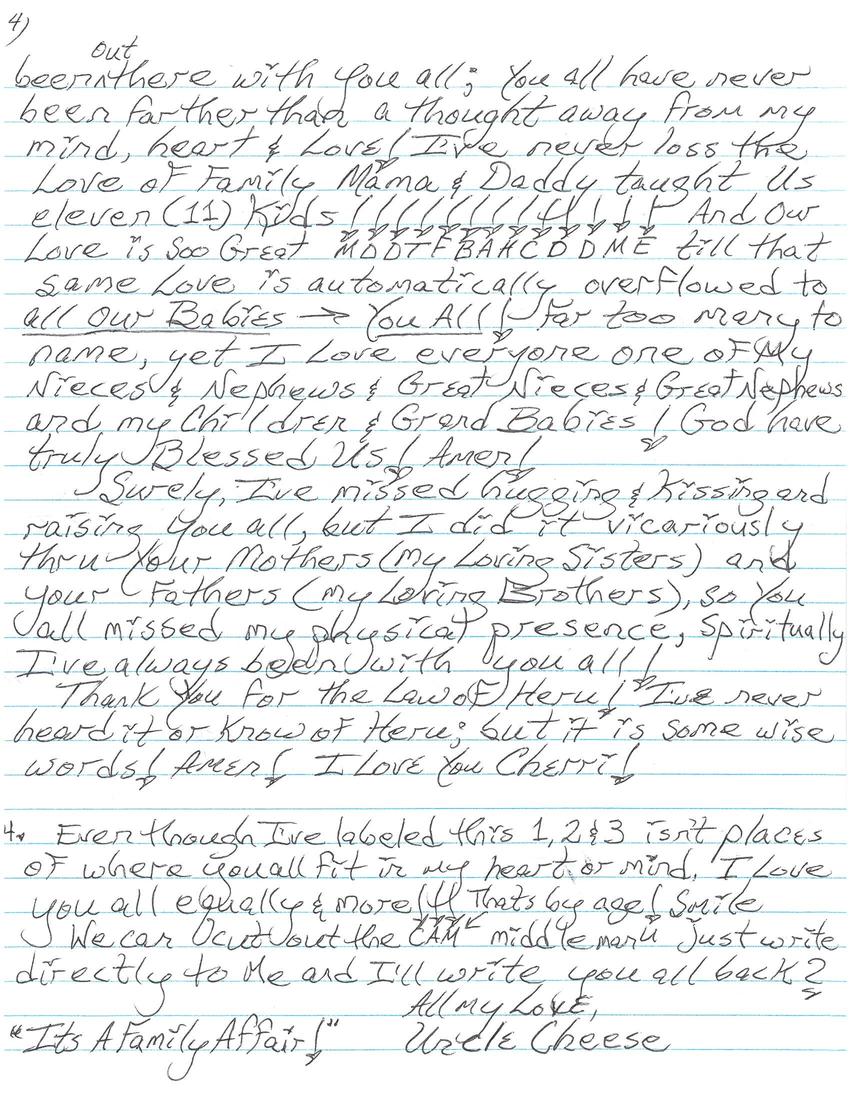 4)
out
been^there with you all; You all have never
been farther than a thought away from my
mind, heart & Love! I've never loss the
Love of Family Mama & Daddy taught Us
eleven (11) Kids !!!!!!!!!!!!! And Our
Love is Soo Great MDDTFBAHCDDME till that
same Love is automatically overflowed to
all Our Babies → You All! Far too many to
name, yet I Love everyone one of My
Nieces & Nephews & Great Nieces & Great Nephews
and my Children & Grand Babies! God have
truly Blessed Us! Amen!
Surely, I've missed hugging & Kissing and
raising You all, but I did it vicariously
thru Your Mothers (my Loving Sisters) and
your Fathers (my Loving Brothers), so You
all missed my physical presence, Spiritually
I've always been with you all!
Thank You for the Law of Heru! I've never
heard it or Know of Heru; but it is some wise
words! Amen! I Love You Cherri!
4. Even though I've labeled this 1, 2 & 3 isn't places
of where you all fit in my heart or mind, I Love
you all equally & more!!! Thats by age! Smile
We can cut out the "middle man" Just write
directly to Me and I'll write you all back?
All my Love,
"Its A Family Affair!" Uncle Cheese